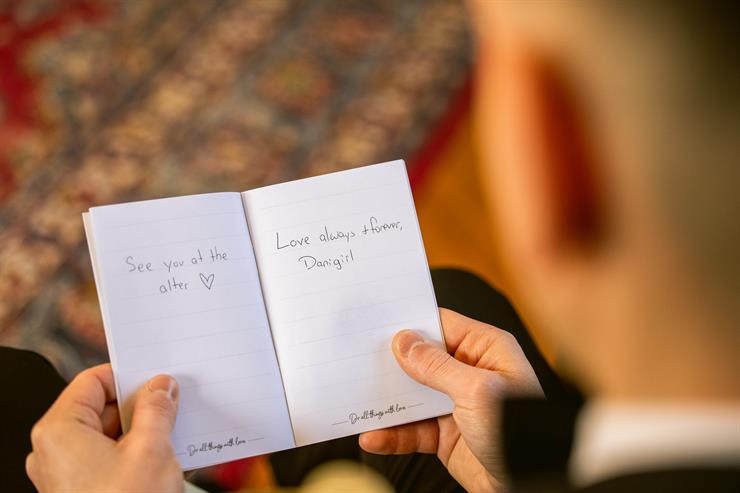 See you at the
alter ♡
Do all things with love
Love always + forever,
Danigirl
Do all things with love